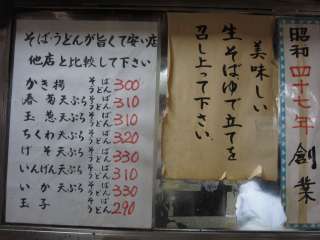 そば・うどんが旨くて安い店
他店と比較して下さい
かき揚 そば うどん 300
春菊天ぷら そば うどん 310
玉葱天ぷら そば うどん 310
ちくわ天ぷら そば うどん 320
げそ天ぷら そば うどん 330
いんげん天ぷら そば うどん 310
いか天ぷら そば うどん 330
玉子 そば うどん 290
美味しい
生そばゆで立てを
召し上って下さい。
昭和四十七年創業